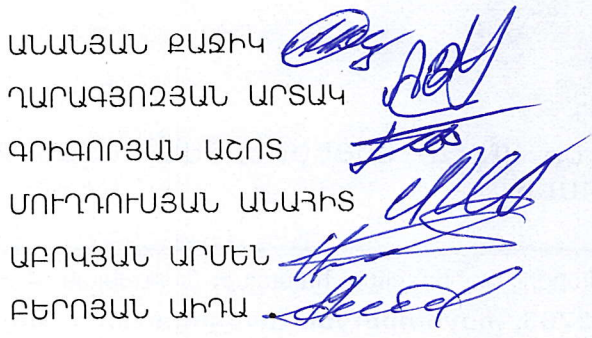 ԱՆԱՆՅԱՆ ՔԱՋԻԿ
ՂԱՐԱԳՅՈԶՅԱՆ ԱՐՏԱԿ
ԳՐԻԳՈՐՅԱՆ ԱՇՈՏ
ՄՈՒՂԴՈՒՍՅԱՆ ԱՆԱՀԻՏ
ԱԲՈՎՅԱՆ ԱՐՄԵՆ
ԲԵՐՈՅԱՆ ԱԻԴԱ